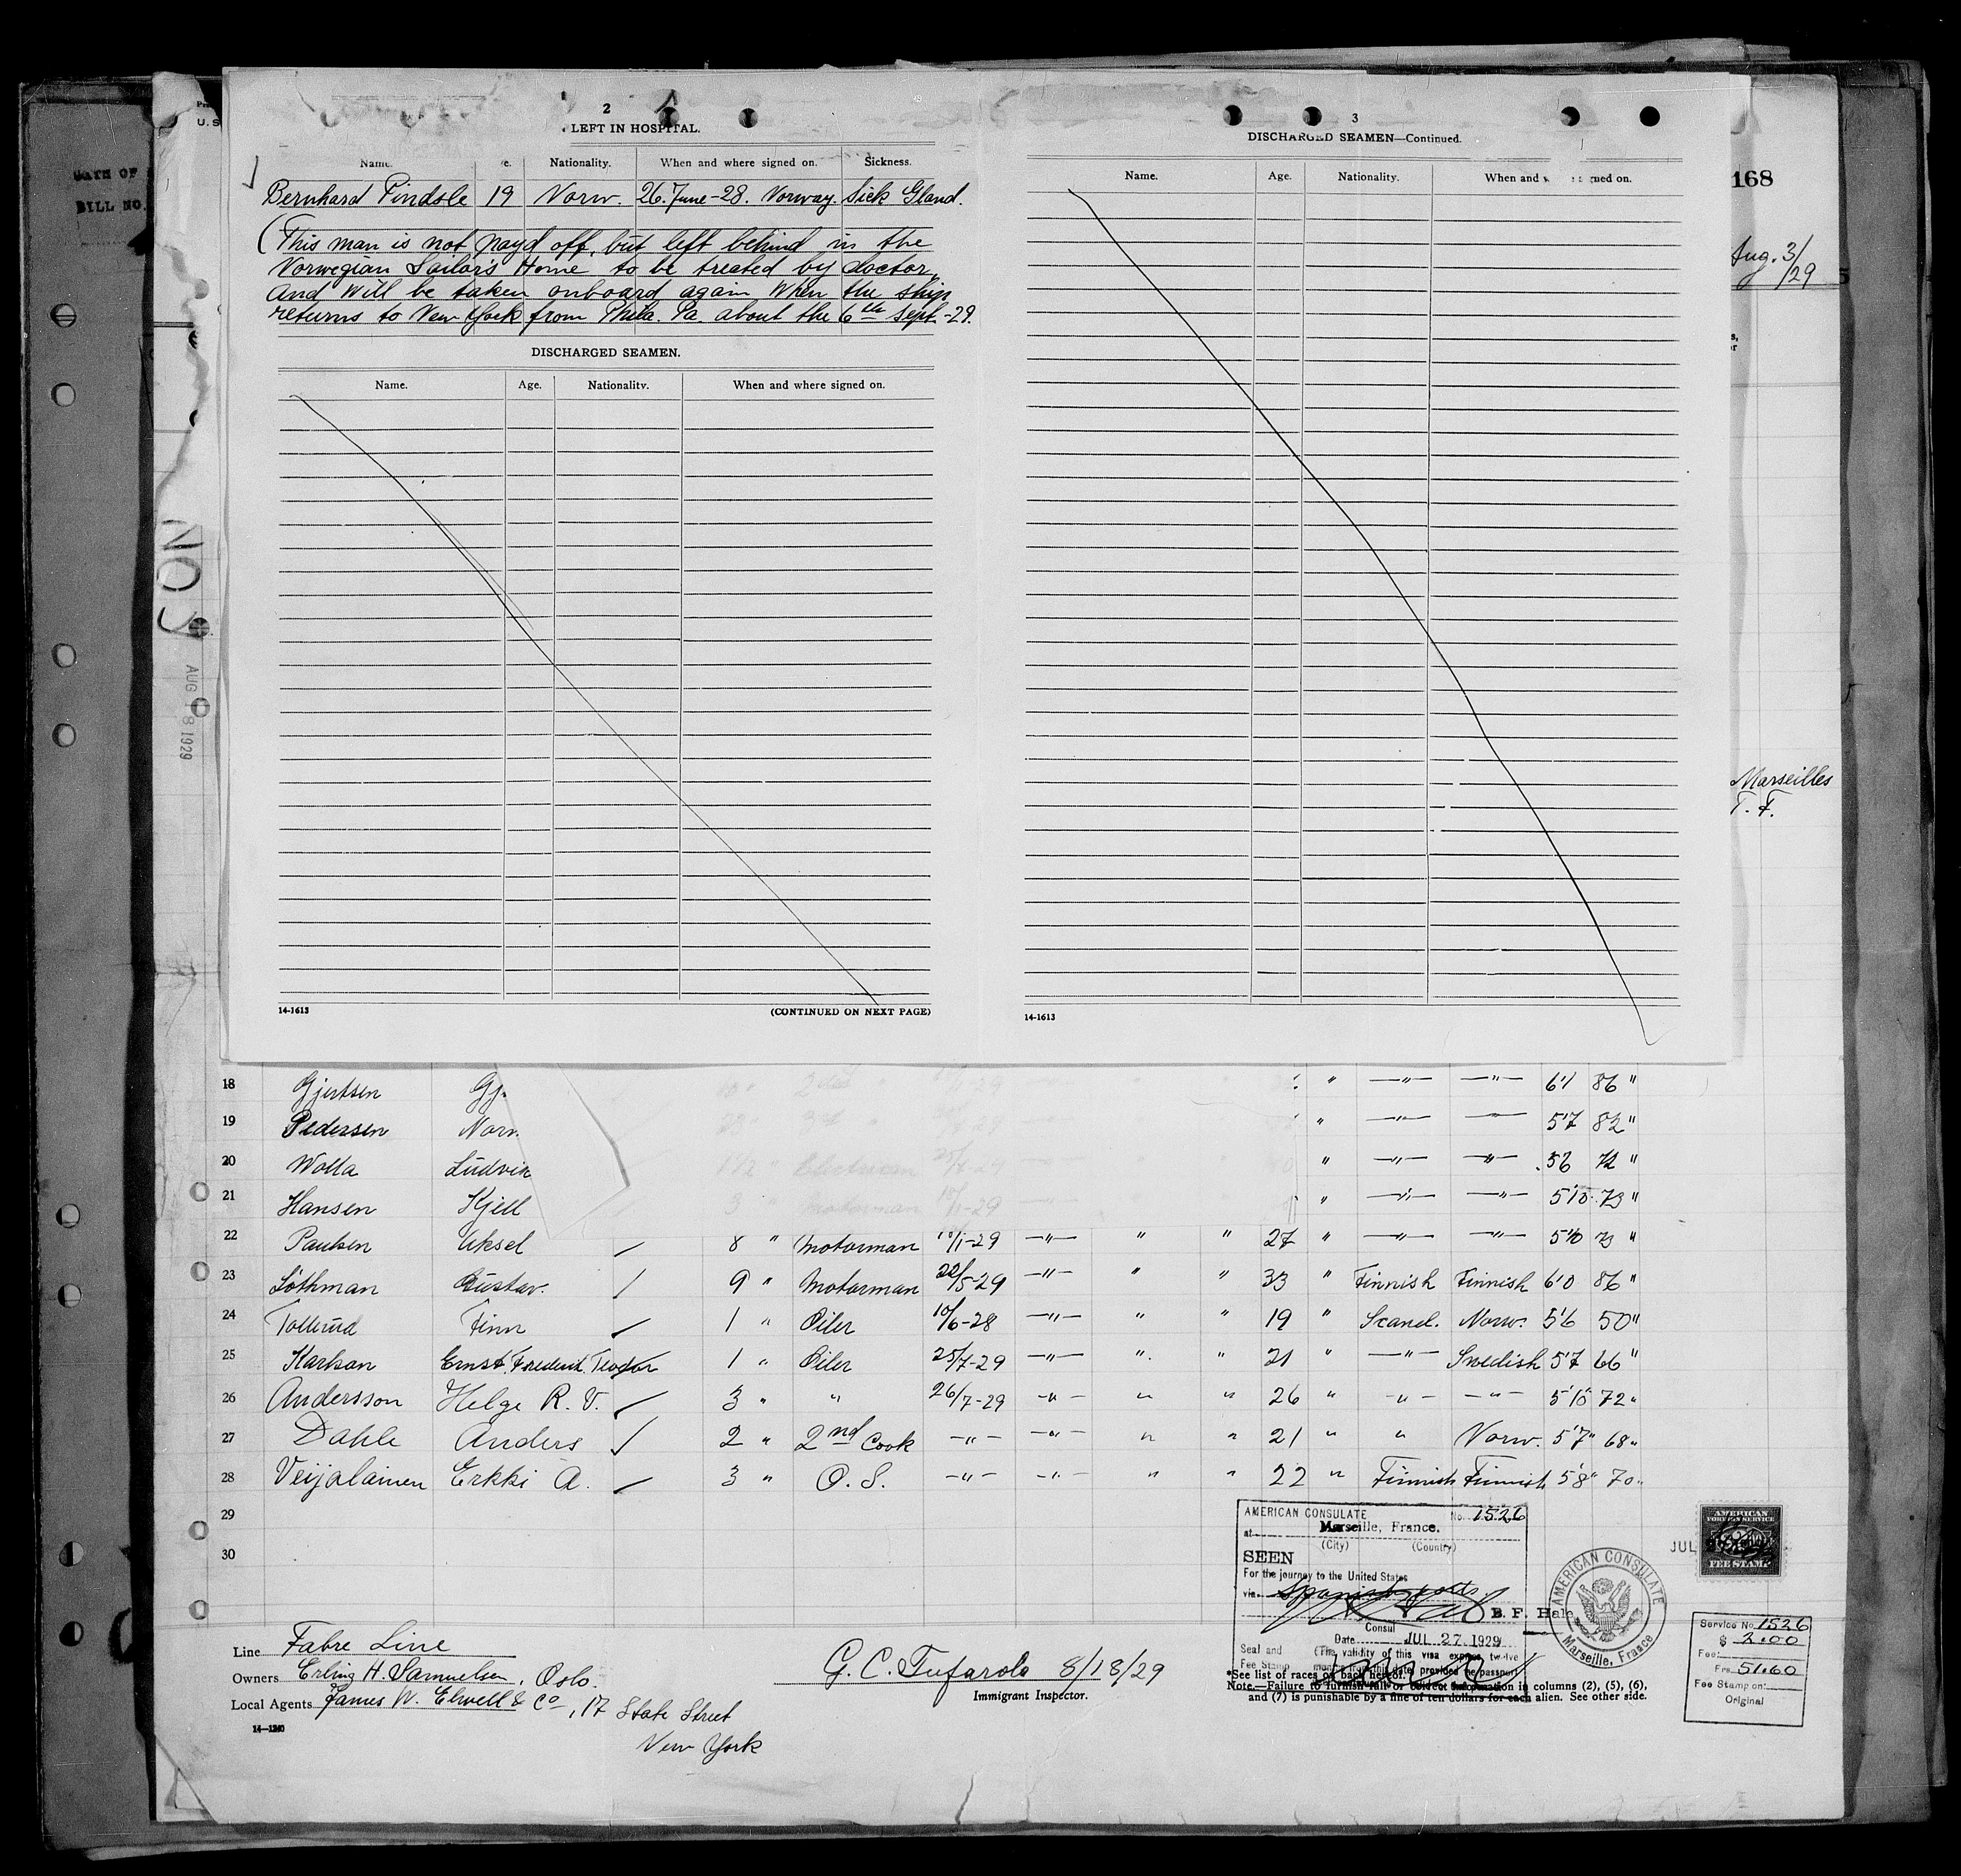 2
LEFT IN HOSPITAL.
Name. Nationality. When and where signed on. Sickness.
Bernhard Pindsle 19 Norw. 26. June-28. Norway. Sick Gland.
(This man is not payd off, but left behind in the
Norwegian Sailor's Home to be treated by doctor,
and will be taken onboard again when the ship
returns to New York from Phila. Pa. about the 6th Sept.-29.
DISCHARGED SEAMEN.
Name. Age. Nationality. When and where signed on.
14-1613 (CONTINUED ON NEXT PAGE)
3
DISCHARGED SEAMEN—Continued.
Name. Age. Nationality. When and signed on.
14-1613
168
Aug. 3/
/29
Marseilles
T. F.
U. S.
OATH OF
BILL NO.
NO
AUG 18 1929
18 Gjertsen Gj. " —"— —"— 6'1 86 "
19 Pedersen Norv. " —"— —"— 5'7 82 "
20 Wolla Ludvik " —"— —"— 5'6 72 "
21 Hansen Kjell " —"— —"— 5'10 73 "
22 Paulsen Aksel ✓ 8 " Motorman 10/1-29 —"— " " 27 " —"— —"— 5'10 73 "
23 Löthman Gustav. ✓ 9 " Motorman 22/5-29 —"— " " 33 " Finnish Finnish 6'0 86 "
24 Tollerud Finn ✓ 1 " Oiler 10/6-28 —"— " " 19 " Scand. Norw. 5'6 50 "
25 Karlson Ernst. Frederik. Teodor 1 " Oiler 25/7-29 —"— " " 21 " —"— Swedish 5'7 66 "
26 Andersson Helge R. V. ✓ 3 " " 26/7-29 —"— " " 26 " —"— —"— 5'10 72 "
27 Dahle Anders ✓ 2 " 2nd Cook —"— —"— " " 21 " " Norw. 5'7" 68 "
28 Veijalainen Erkki A. ✓ 3 " O. S. —"— —"— " " 22 " Finnish Finnish 5'8" 70 "
29
30
AMERICAN CONSULATE No. 1526
at Marseille, France.
(City) (Country)
SEEN
For the journey to the United States
via Spanish ports.
B. F. Hale
Consul
Date JUL 27 1929
Seal and Fee Stamp (The validity of this visa expires twelve
months from this date, provided the passport
AMERICAN CONSULATE
Marseille, France
JUL
AMERICAN
FOREIGN SERVICE
FEE STAMP
Service No. 1526
$ 2.00
Fee:
Frs 51.60
Fee Stamp on:
Original
Line Fabre Line
Owners Erling H. Samuelsen, Oslo.
Local Agents James W. Elwell & Co, 17 State Street
New York
14—1240
G. C. Tufarolo 8/18/29
Immigrant Inspector.
*See list of races on back hereof.
Note.—Failure to furnish full or correct information in columns (2), (5), (6),
and (7) is punishable by a fine of ten dollars for each alien. See other side.